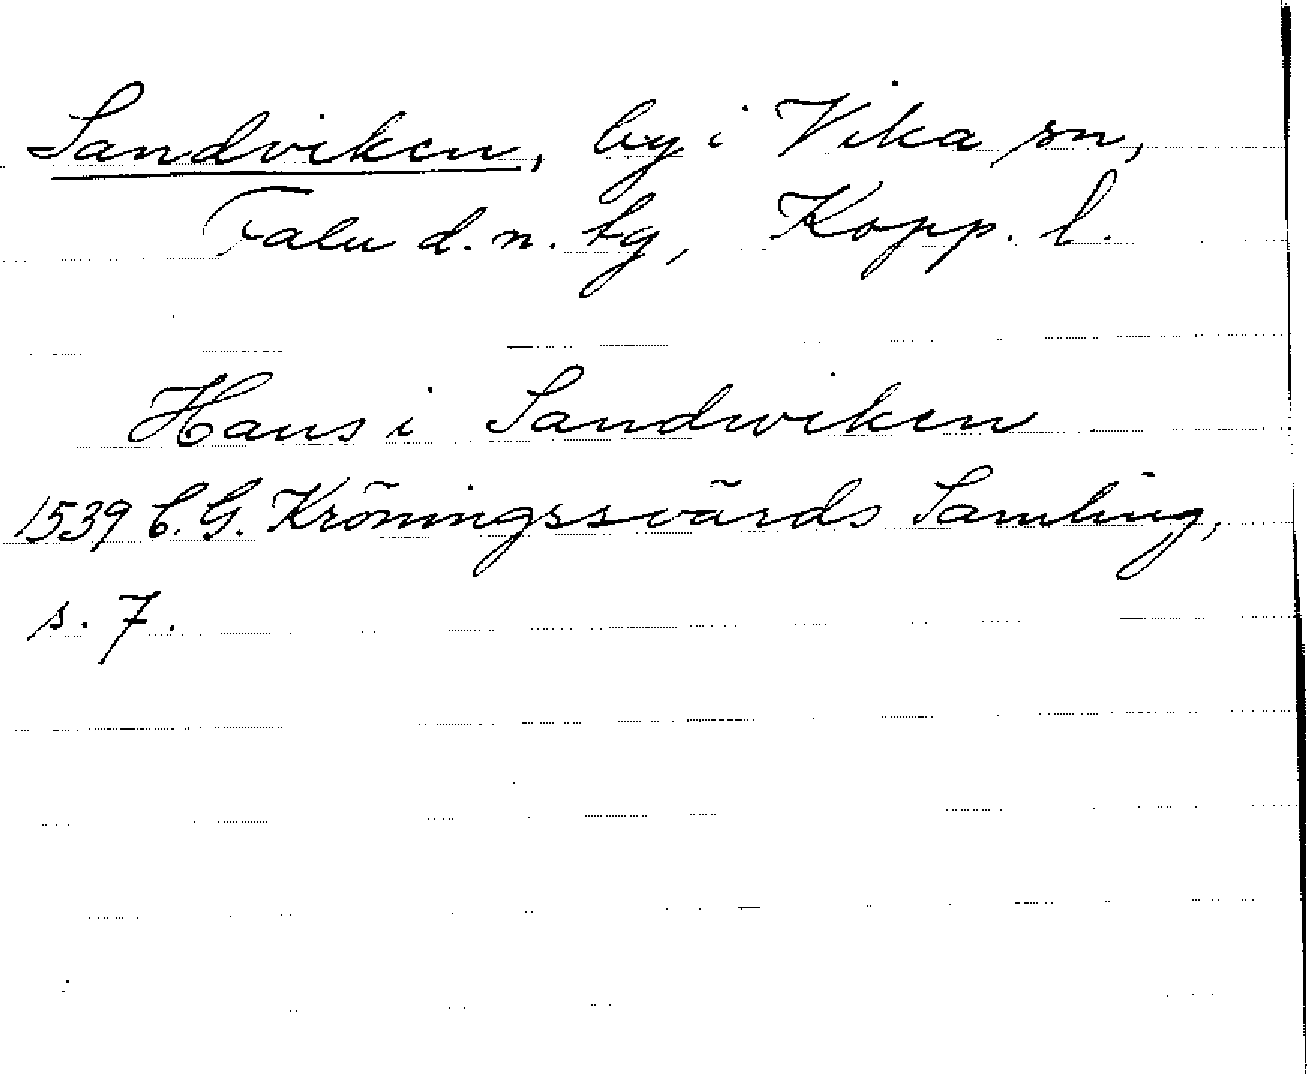 Sandviken, by i Vika sn,
Falu d. n. tg, Kopp. l.
Hans i Sandwiken
1539 C. G. Kröningssvärds Samling,
s. 7.